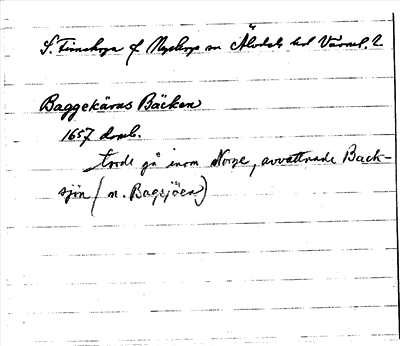 S. Finnskoga f. Nyskoga sn Älvdals hd Värml. l.
Baggekärns Bäcken
1657 domb.
torde gå inom Norge, avvattnade Back-
sjön (n. Bagsjöen)